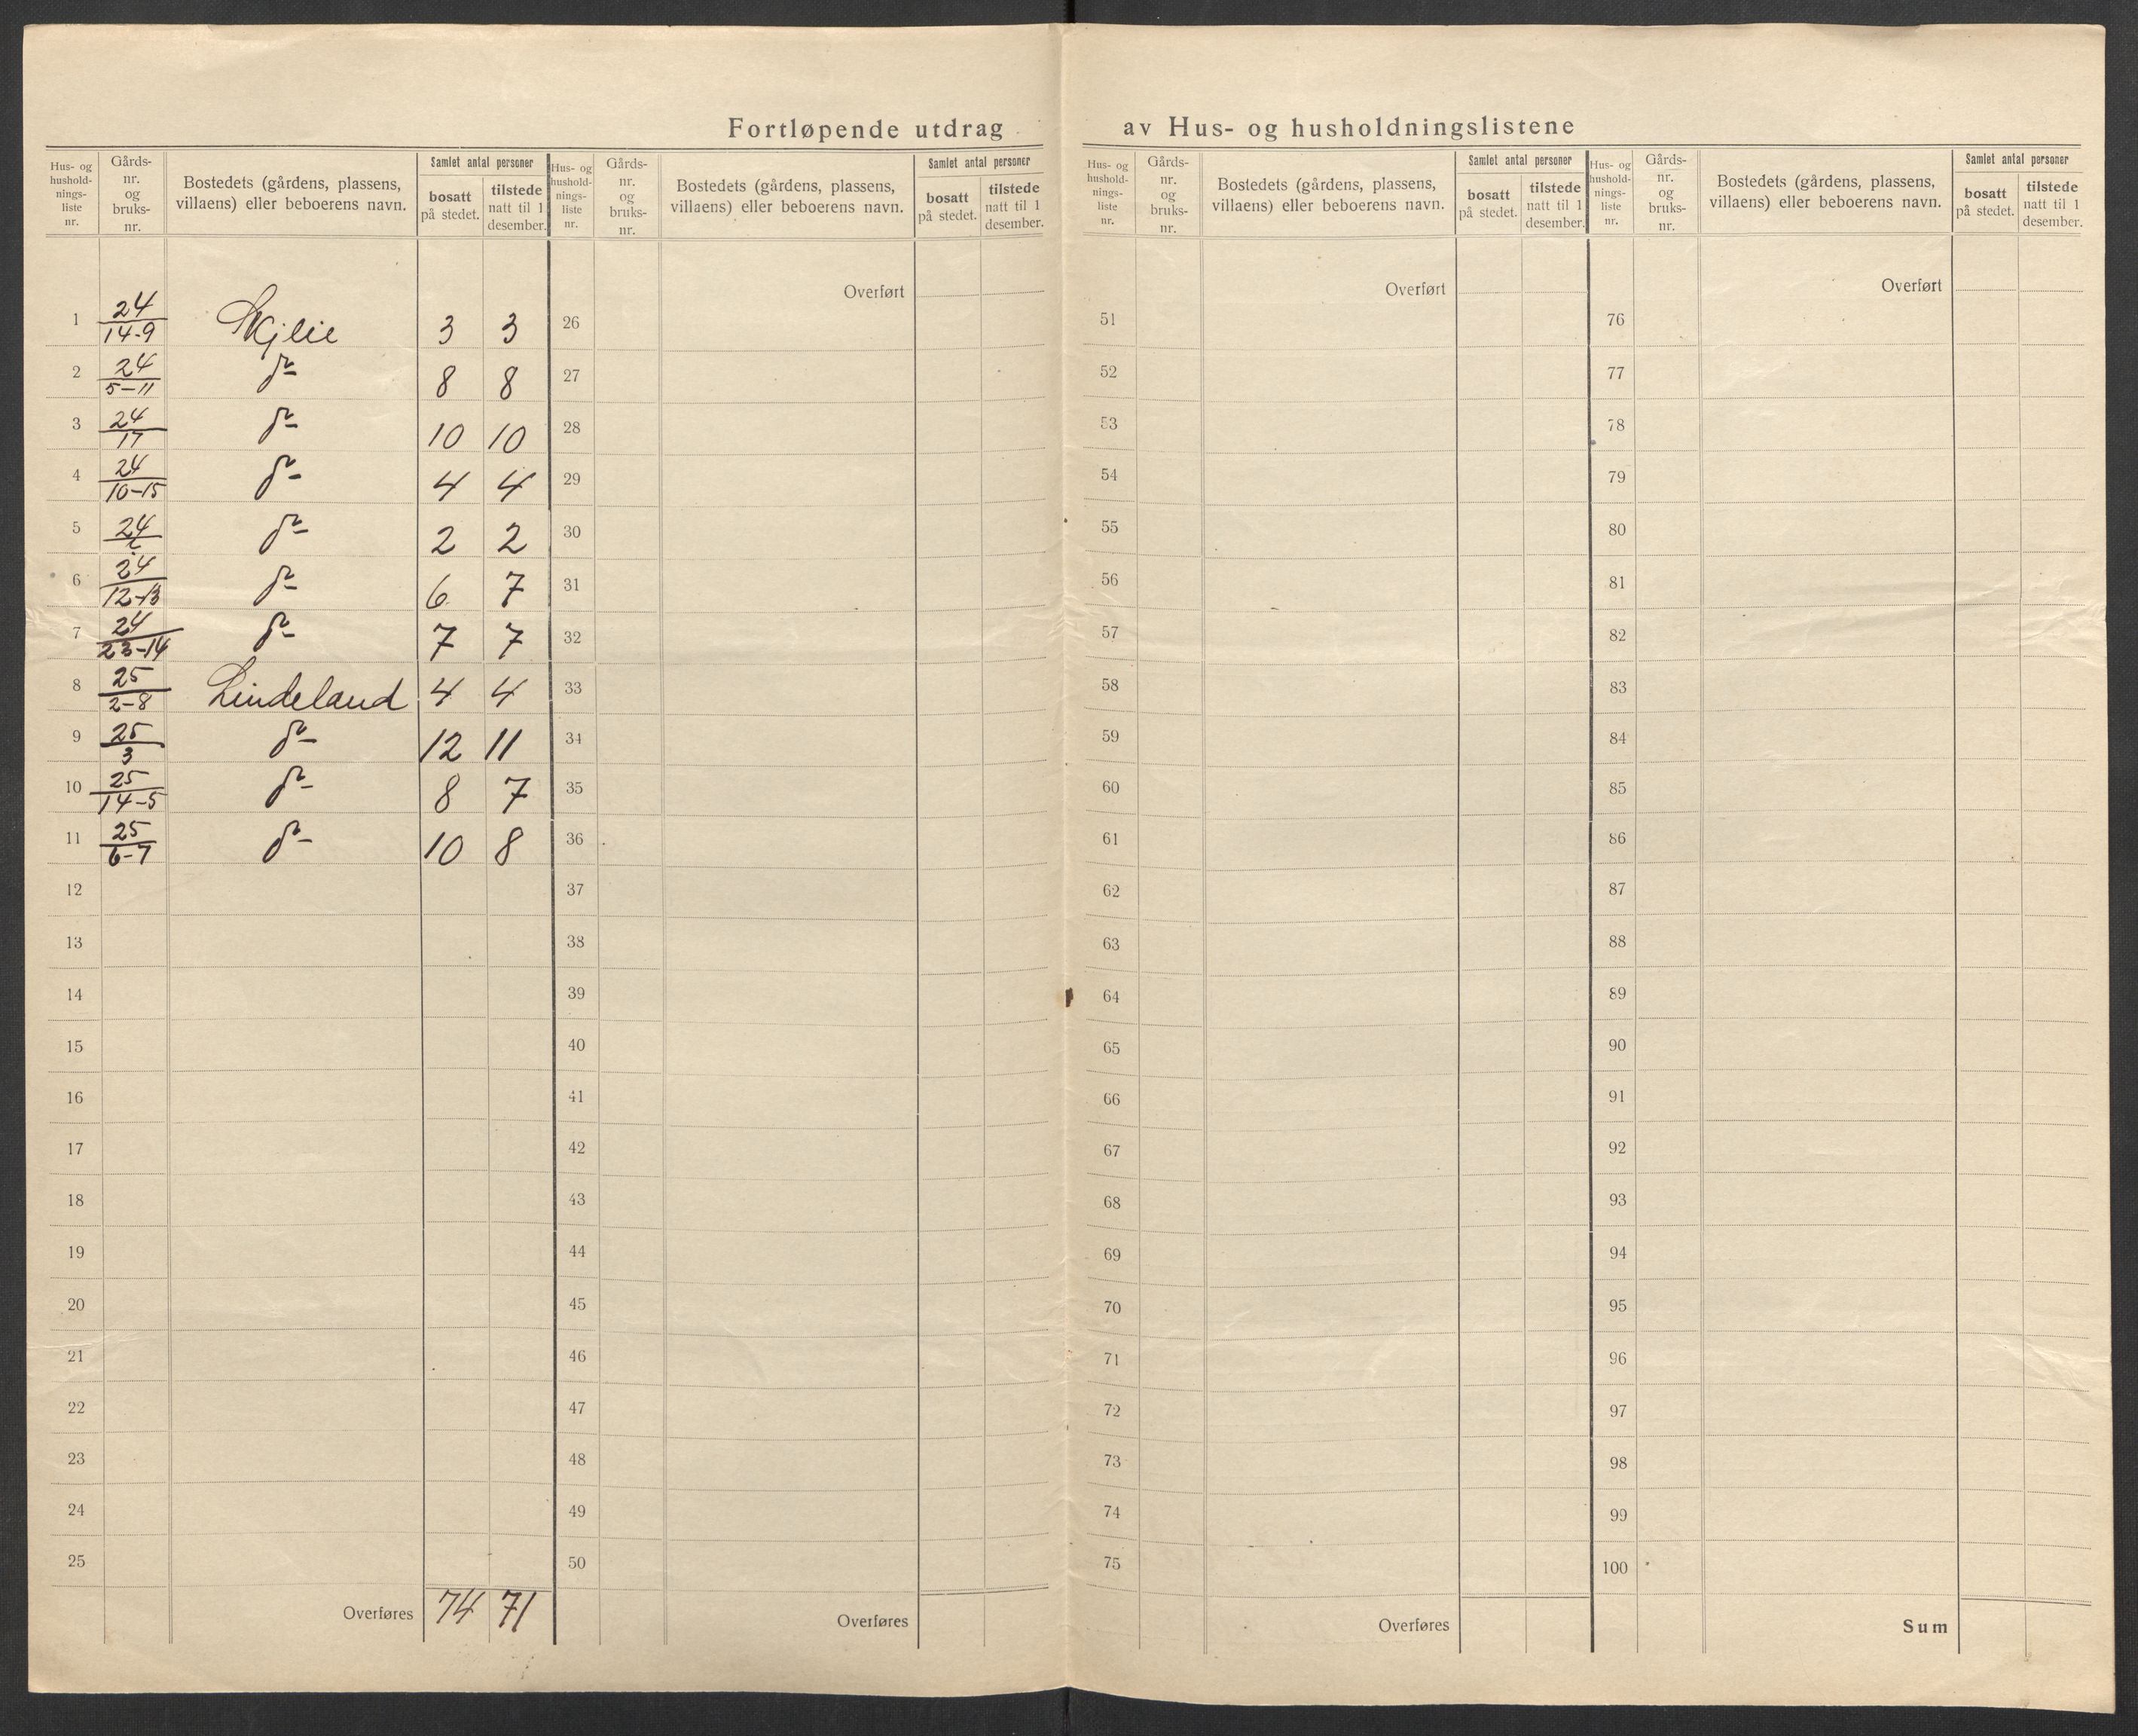 Fortløpende utdrag av Hus- og husholdningslistene
Hus- og husholdnings-liste nr. Gårds-nr. og bruks-nr. Bostedets (gårdens, plassens, villaens) eller beboerens navn. Samlet antal personer bosatt på stedet. tilstede natt til 1 desember.
1 24/14-9 Skjlie 3 3
2 24/5-11 do 8 8
3 24/17 do 10 10
4 24/10-15 do 4 4
5 24/ do 2 2
6 24/12-13 do 6 7
7 24/23-14 do 7 7
8 25/2-8 Lindeland 4 4
9 25/3 do 12 11
10 25/14-5 do 8 7
11 25/6-7 do 10 8
12
13
14
15
16
17
18
19
20
21
22
23
24
25
Overføres 74 71
Hus- og husholdnings-liste nr. Gårds-nr. og bruks-nr. Bostedets (gårdens, plassens, villaens) eller beboerens navn. Samlet antal personer bosatt på stedet. tilstede natt til 1 desember.
Overført
26
27
28
29
30
31
32
33
34
35
36
37
38
39
40
41
42
43
44
45
46
47
48
49
50
Overføres
Hus- og husholdnings-liste nr. Gårds-nr. og bruks-nr. Bostedets (gårdens, plassens, villaens) eller beboerens navn. Samlet antal personer bosatt på stedet. tilstede natt til 1 desember.
Overført
51
52
53
54
55
56
57
58
59
60
61
62
63
64
65
66
67
68
69
70
71
72
73
74
75
Overføres
Hus- og husholdnings-liste nr. Gårds-nr. og bruks-nr. Bostedets (gårdens, plassens, villaens) eller beboerens navn. Samlet antal personer bosatt på stedet. tilstede natt til 1 desember.
Overført
76
77
78
79
80
81
82
83
84
85
86
87
88
89
90
91
92
93
94
95
96
97
98
99
100
Sum